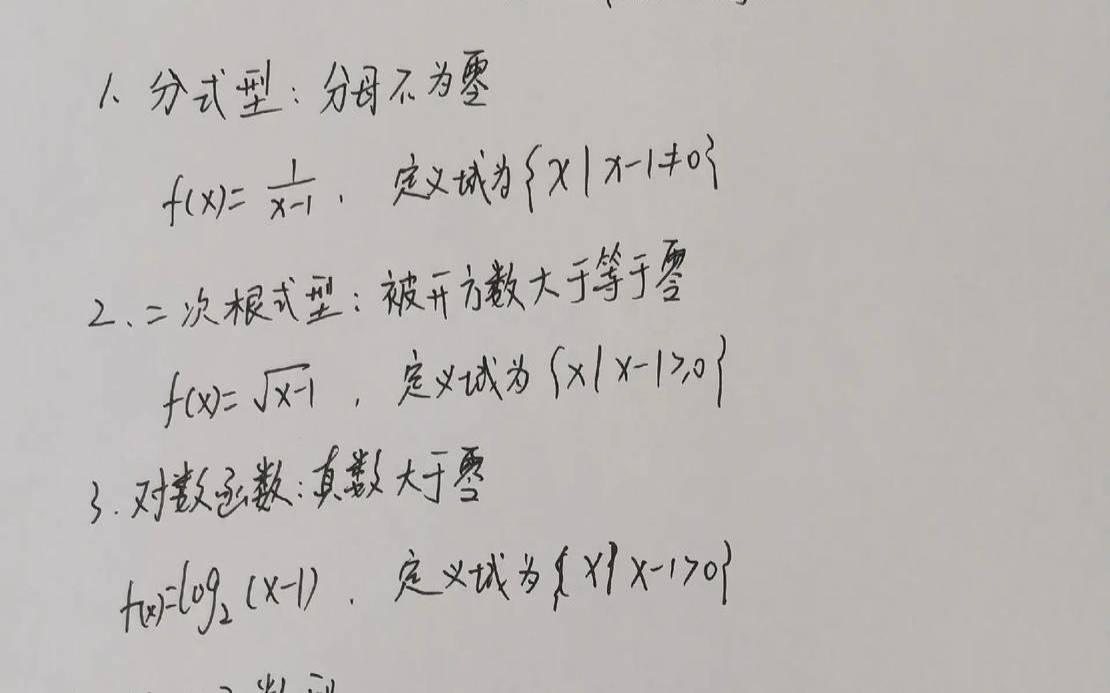 1. 分式型：分母不为零
f(x)=1/(x-1)，定义域为{x|x-1≠0}
2、二次根式型：被开方数大于等于零
f(x)=√(x-1)，定义域为{x|x-1≥0}
3. 对数函数：真数大于零
f(x)=log₂(x-1)，定义域为{x|x-1>0}